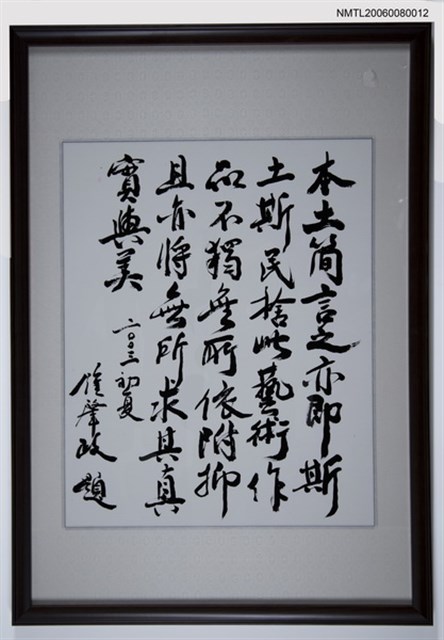 NMTL20060080012
本土简言之亦即斯
土斯民捨此藝術作
品不獨無所依附抑
且亦將無所求其真
實與美
二〇〇三初夏
鍾肇政題